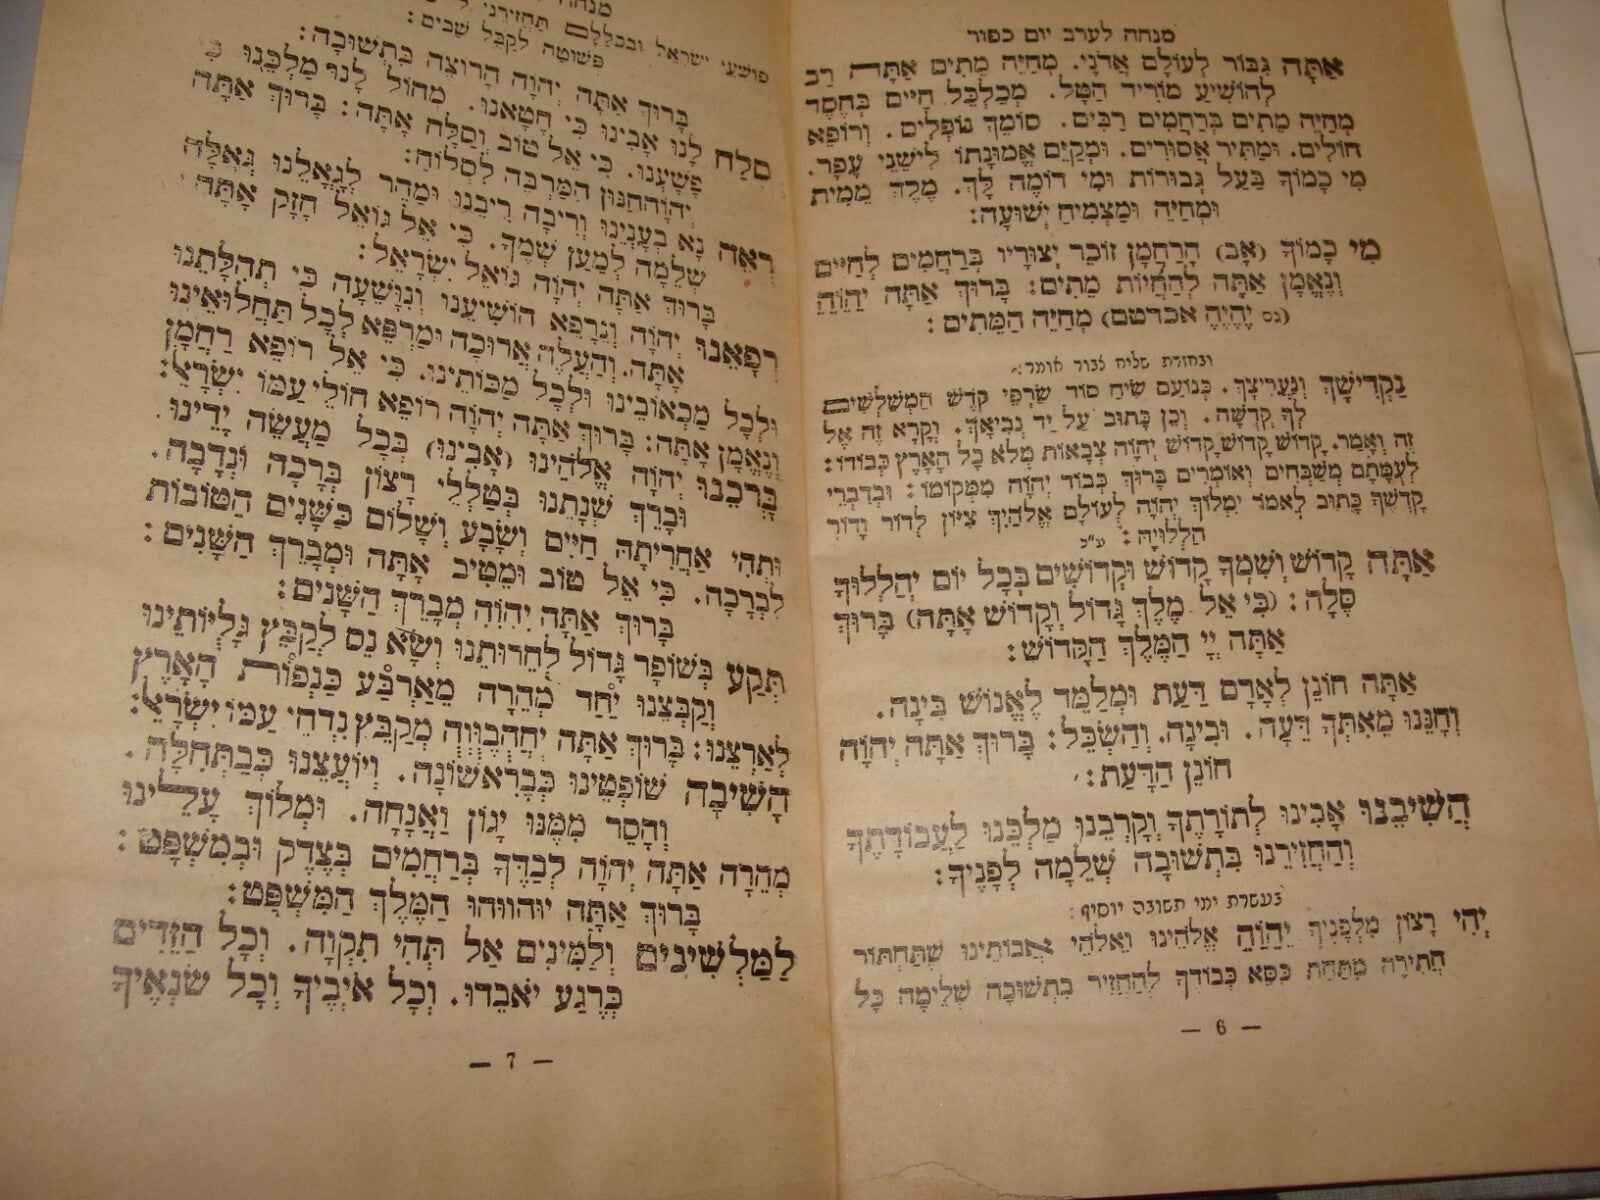 מנחה לערב יום כפור
אַתָּה גִּבּוֹר לְעוֹלָם אֲדֹנָי. מְחַיֵּה מֵתִים אַתָּה רַב
לְהוֹשִׁיעַ מוֹרִיד הַטָּל. מְכַלְכֵּל חַיִּים בְּחֶסֶד
מְחַיֵּה מֵתִים בְּרַחֲמִים רַבִּים. סוֹמֵךְ נוֹפְלִים. וְרוֹפֵא
חוֹלִים. וּמַתִּיר אֲסוּרִים. וּמְקַיֵּם אֱמוּנָתוֹ לִישֵׁנֵי עָפָר.
מִי כָמוֹךָ בַּעַל גְּבוּרוֹת וּמִי דוֹמֶה לָּךְ. מֶלֶךְ מֵמִית
וּמְחַיֵּה וּמַצְמִיחַ יְשׁוּעָה:
מִי כָמוֹךָ (אָב) הָרַחֲמָן זוֹכֵר יְצוּרָיו בְּרַחֲמִים לְחַיִּים
וְנֶאֱמָן אַתָּה לְהַחֲיוֹת מֵתִים: בָּרוּךְ אַתָּה יַהֲוַהַ
אכדטם) מְחַיֵּה הַמֵּתִים:
ובחזרת שליח צבור אומר:
נַקְדִּישָׁךְ וְנַעֲרִיצָךְ. כְּנוֹעַם שִׂיחַ סוֹד שַׂרְפֵי קֹדֶשׁ הַמְשַׁלְּשִׁים
לְךָ קְדֻשָּׁה. וְכֵן כָּתוּב עַל יַד נְבִיאָךְ. וְקָרָא זֶה אֶל
זֶה וְאָמַר. קָדוֹשׁ קָדוֹשׁ קָדוֹשׁ יְהֹוָה צְבָאוֹת מְלֹא כָל הָאָרֶץ כְּבוֹדוֹ:
לְעֻמָּתָם מְשַׁבְּחִים וְאוֹמְרִים בָּרוּךְ כְּבוֹד יְהֹוָה מִמְּקוֹמוֹ: וּבְדִבְרֵי
קָדְשְׁךָ כָּתוּב לֵאמֹר יִמְלוֹךְ יְהֹוָה לְעוֹלָם אֱלֹהַיִךְ צִיּוֹן לְדוֹר וָדוֹר
הַלְלוּיָהּ: ע"כ
אַתָּה קָדוֹשׁ וְשִׁמְךָ קָדוֹשׁ וּקְדוֹשִׁים בְּכָל יוֹם יְהַלְלוּךָ
סֶּלָה: (כִּי אֵל מֶלֶךְ גָּדוֹל וְקָדוֹשׁ אָתָּה) בָּרוּךְ
אַתָּה יְיָ הַמֶּלֶךְ הַקָּדוֹשׁ:
אַתָּה חוֹנֵן לְאָדָם דַּעַת וּמְלַמֵּד לֶאֱנוֹשׁ בִּינָה.
וְחָנֵּנוּ מֵאִתְּךָ דֵּעָה. וּבִינָה. וְהַשְׂכֵּל: בָּרוּךְ אַתָּה יְהֹוָה
חוֹנֵן הַדָּעַת:
הֲשִׁיבֵנוּ אָבִינוּ לְתוֹרָתֶךָ וְקָרְבֵנוּ מַלְכֵּנוּ לַעֲבוֹדָתֶךָ
וְהַחֲזִירֵנוּ בִּתְשׁוּבָה שְׁלֵמָה לְפָנֶיךָ:
בעשרת ימי תשובה יוסיף:
יְהִי רָצוֹן מִלְּפָנֶיךָ יֵהֵוֵהֵ אֱלֹהֵינוּ וֵאלֹהֵי אֲבוֹתֵינוּ שֶׁתַּחְתּוֹר
חֲתִירָה מִתַּחַת כִּסֵּא כְבוֹדֶךָ לְהַחֲזִיר בִּתְשׁוּבָה שְׁלֵימָה כָּל
— 6 —
מנחה
פּוֹשְׁעֵי יִשְׂרָאֵל וּבִכְלָלָם תַּחֲזִירֵנִי
פְּשׁוּטָה לְקַבֵּל שָׁבִים:
בָּרוּךְ אַתָּה יְהֹוָה הָרוֹצֶה בִּתְשׁוּבָה:
סְלַח לָנוּ אָבִינוּ כִּי חָטָאנוּ. מְחוֹל לָנוּ מַלְכֵּנוּ כִּי
פָשָׁעְנוּ. כִּי אֵל טוֹב וְסַלָּח אָתָּה: בָּרוּךְ אַתָּה
הַמַּרְבֶּה לִסְלוֹחַ:
רְאֵה נָא בְעָנְיֵנוּ וְרִיבָה רִיבֵנוּ וּמַהֵר לְגָאֳלֵנוּ גְּאֻלָּה
שְׁלֵמָה לְמַעַן שְׁמֶךָ. כִּי אֵל גּוֹאֵל חָזָק אָתָּה
בָּרוּךְ אַתָּה יְהֹוָה גּוֹאֵל יִשְׂרָאֵל:
רְפָאֵנוּ יְהֹוָה וְנֵרָפֵא הוֹשִׁיעֵנוּ וְנִוָּשֵׁעָה כִּי תְהִלָּתֵנוּ
אָתָּה. וְהַעֲלֵה אֲרוּכָה וּמַרְפֵּא לְכָל תַּחֲלוּאֵינוּ
וּלְכָל מַכְאוֹבֵינוּ וּלְכָל מַכּוֹתֵינוּ. כִּי אֵל רוֹפֵא רַחֲמָן
וְנֶאֱמָן אָתָּה: בָּרוּךְ אַתָּה יְהֹוָה רוֹפֵא חוֹלֵי עַמּוֹ יִשְׂרָאֵל:
בָּרְכֵנוּ יְהֹוָה אֱלֹהֵינוּ (אָבִינוּ) בְּכָל מַעֲשֵׂה יָדֵינוּ.
וּבָרֵךְ שְׁנָתֵנוּ בְּטַלְלֵי רָצוֹן בְּרָכָה וּנְדָבָה.
וּתְהִי אַחֲרִיתָהּ חַיִּים וְשָׂבָע וְשָׁלוֹם כַּשָּׁנִים הַטּוֹבוֹת
לִבְרָכָה. כִּי אֵל טוֹב וּמֵטִיב אַתָּה וּמְבָרֵךְ הַשָּׁנִים:
בָּרוּךְ אַתָּה יִהִוִהִ מְבָרֵךְ הַשָּׁנִים:
תְּקַע בְּשׁוֹפָר גָּדוֹל לְחֵרוּתֵנוּ וְשָׂא נֵס לְקַבֵּץ גָּלֻיּוֹתֵינוּ
וְקַבְּצֵנוּ יַחַד מְהֵרָה מֵאַרְבַּע כַּנְפוֹת הָאָרֶץ
לְאַרְצֵנוּ: בָּרוּךְ אַתָּה מְקַבֵּץ נִדְחֵי עַמּוֹ יִשְׂרָאֵל:
הָשִׁיבָה שׁוֹפְטֵינוּ כְּבָרִאשׁוֹנָה. וְיוֹעֲצֵנוּ כְּבַתְּחִלָּה.
וְהָסֵר מִמֶּנּוּ יָגוֹן וַאֲנָחָה. וּמְלוֹךְ עָלֵינוּ
מְהֵרָה אַתָּה יְהֹוָה לְבַדְּךָ בְּרַחֲמִים בְּצֶדֶק וּבְמִשְׁפָּט:
בָּרוּךְ אַתָּה יוּהוּווּהוּ הַמֶּלֶךְ הַמִּשְׁפָּט:
לַמַּלְשִׁינִים וְלַמִּינִים אַל תְּהִי תִקְוָה. וְכָל הַזֵּדִים
כְּרֶגַע יֹאבֵדוּ. וְכָל אֹיְבֶיךָ וְכָל שֹׂנְאֶיךָ
— 7 —